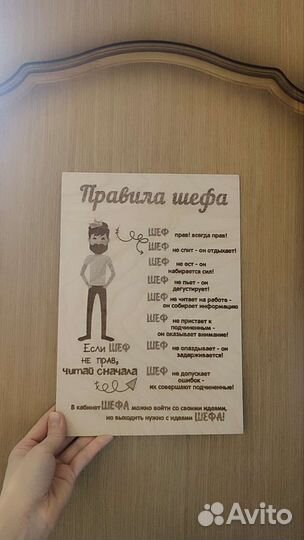 Правила шефа
ШЕФ прав! всегда прав!
ШЕФ не спит - он отдыхает!
ШЕФ не ест - он
набирается сил!
ШЕФ не пьет - он
дегустирует!
ШЕФ не читает на работе -
он собирает информацию
ШЕФ не пристает к
подчиненным -
он оказывает внимание!
ШЕФ не опаздывает - он
задерживается!
ШЕФ не допускает
ошибок -
их совершают подчиненные!
Если ШЕФ
не прав,
читай сначала
В кабинет ШЕФА можно войти со своими идеями,
но выходить нужно с идеями ШЕФА!
Avito